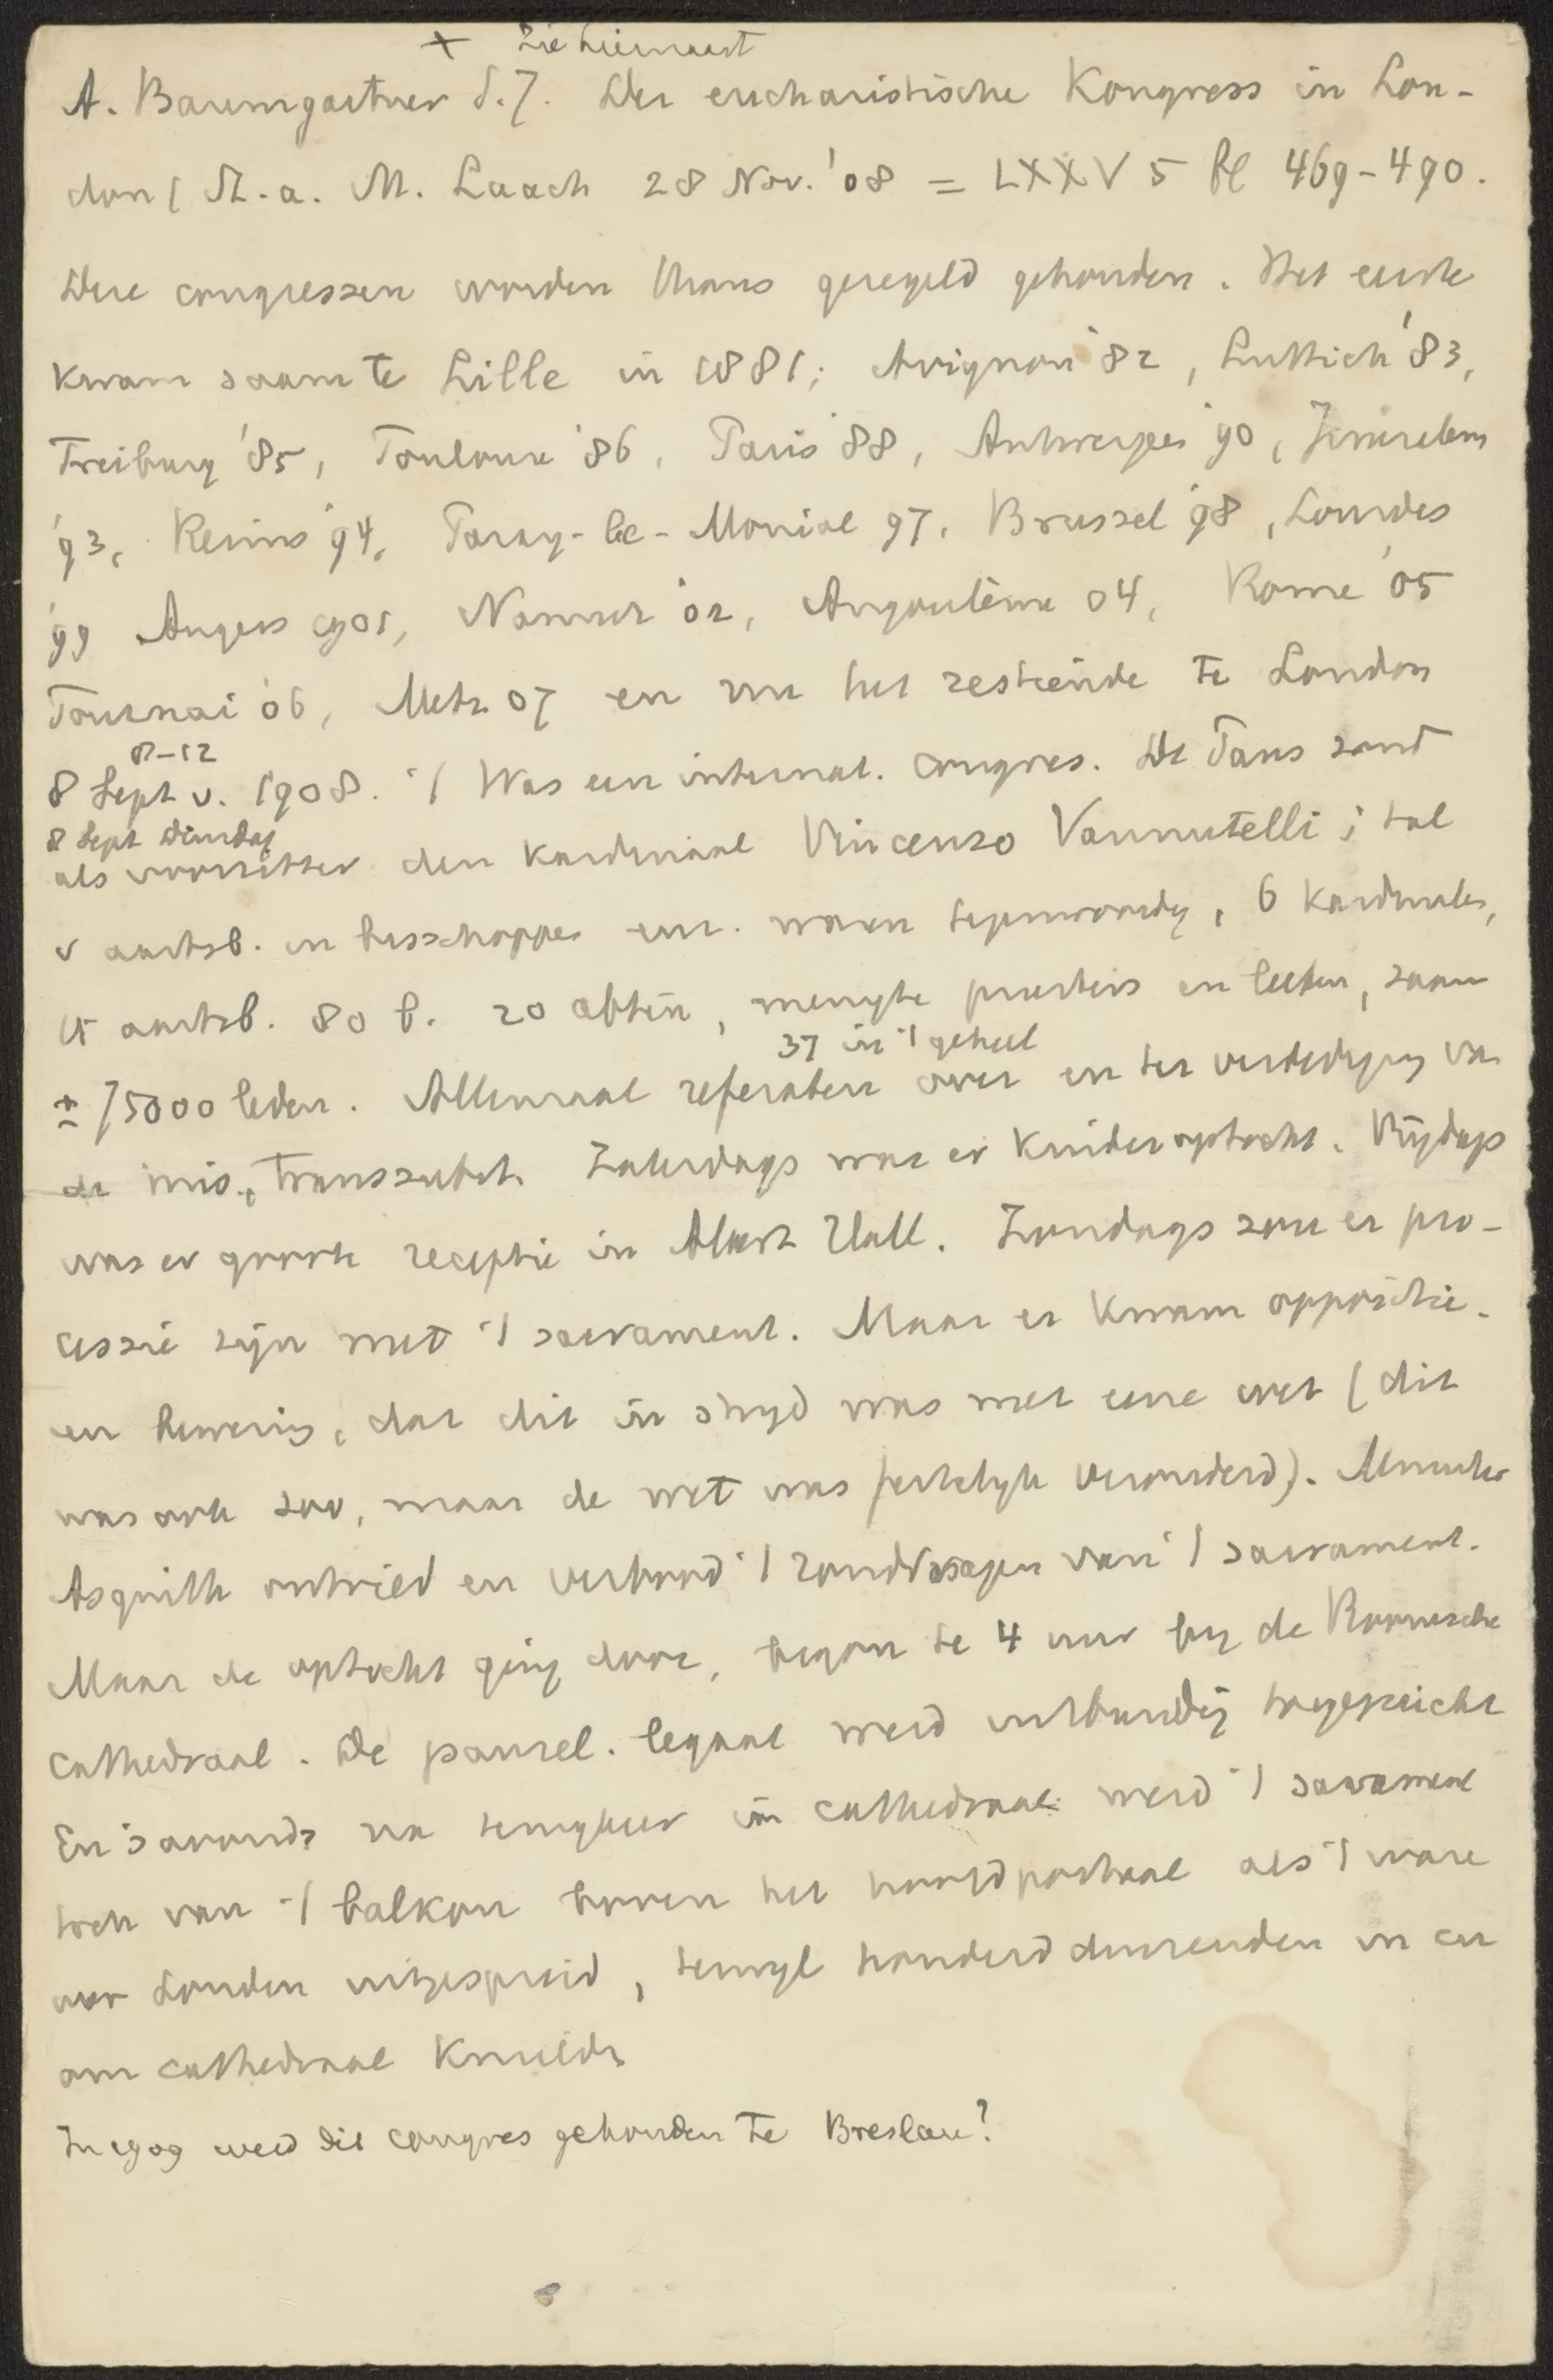 + Zie hiernaast
A. Baumgartner S.J. Der eucharistische Kongress in Lon-
don ( St. a. M. Laach 28 Nov. '08 = LXXV 5 bl 469-490.
Deze congressen worden thans geregeld gehouden. Het eerste
kwam saam te Lille in 1881; Avignon '82, Luttich '83,
Freiburg '85, Toulouse '86, Paris '88, Antwerpen '90, Jerusalem
'93, Reims '94, Paray-le-Monial 97, Brussel '98, Lourdes
'99 Angers 1901, Namur '02, Angoulême 04, Rome '05
Tournai '06, Metz 07 en nu het zestiende te London
8-12
8 Sept v. 1908. 't Was een internat. congres. De Paus zond
8 Sept Dinsdag
als voorzitter den kardinaal Vincenzo Vannutelli; tal
v aartsb. en bisschoppen enz. waren tegenwoordig, 6 kardinalen,
15 aartsb. 80 b. 20 abten, menigte priesters en leeken, saam
37 in 't geheel
± 15000 leden. Allemaal referaten over en ter verdediging van
de mis, transsubst. Zaterdags was er kinderoptocht. Vrijdags
was er groote receptie in Albert Hall. Zondags zou er pro-
cessie zijn met 't sacrament. Maar er kwam oppositie.
en bewering, dat dit in strijd was met eene wet (dit
was ook zoo, maar de wet was feitelijk verouderd). Minister
Asquith ontried en verbood 't ronddragen van 't sacrament.
Maar de optocht ging door, begon te 4 uur bij de Roomsche
Cathedraal. De pausel. legaat werd uitbundig toegejuicht
En 's avonds na terugkeer in cathedraal werd 't sacrament
toch van 't balkon boven het hoofdportaal als 't ware
over Londen uitgespreid, terwijl honderdduizenden in en
om cathedraal knielde
In 1909 werd dit congres gehouden te Breslau?